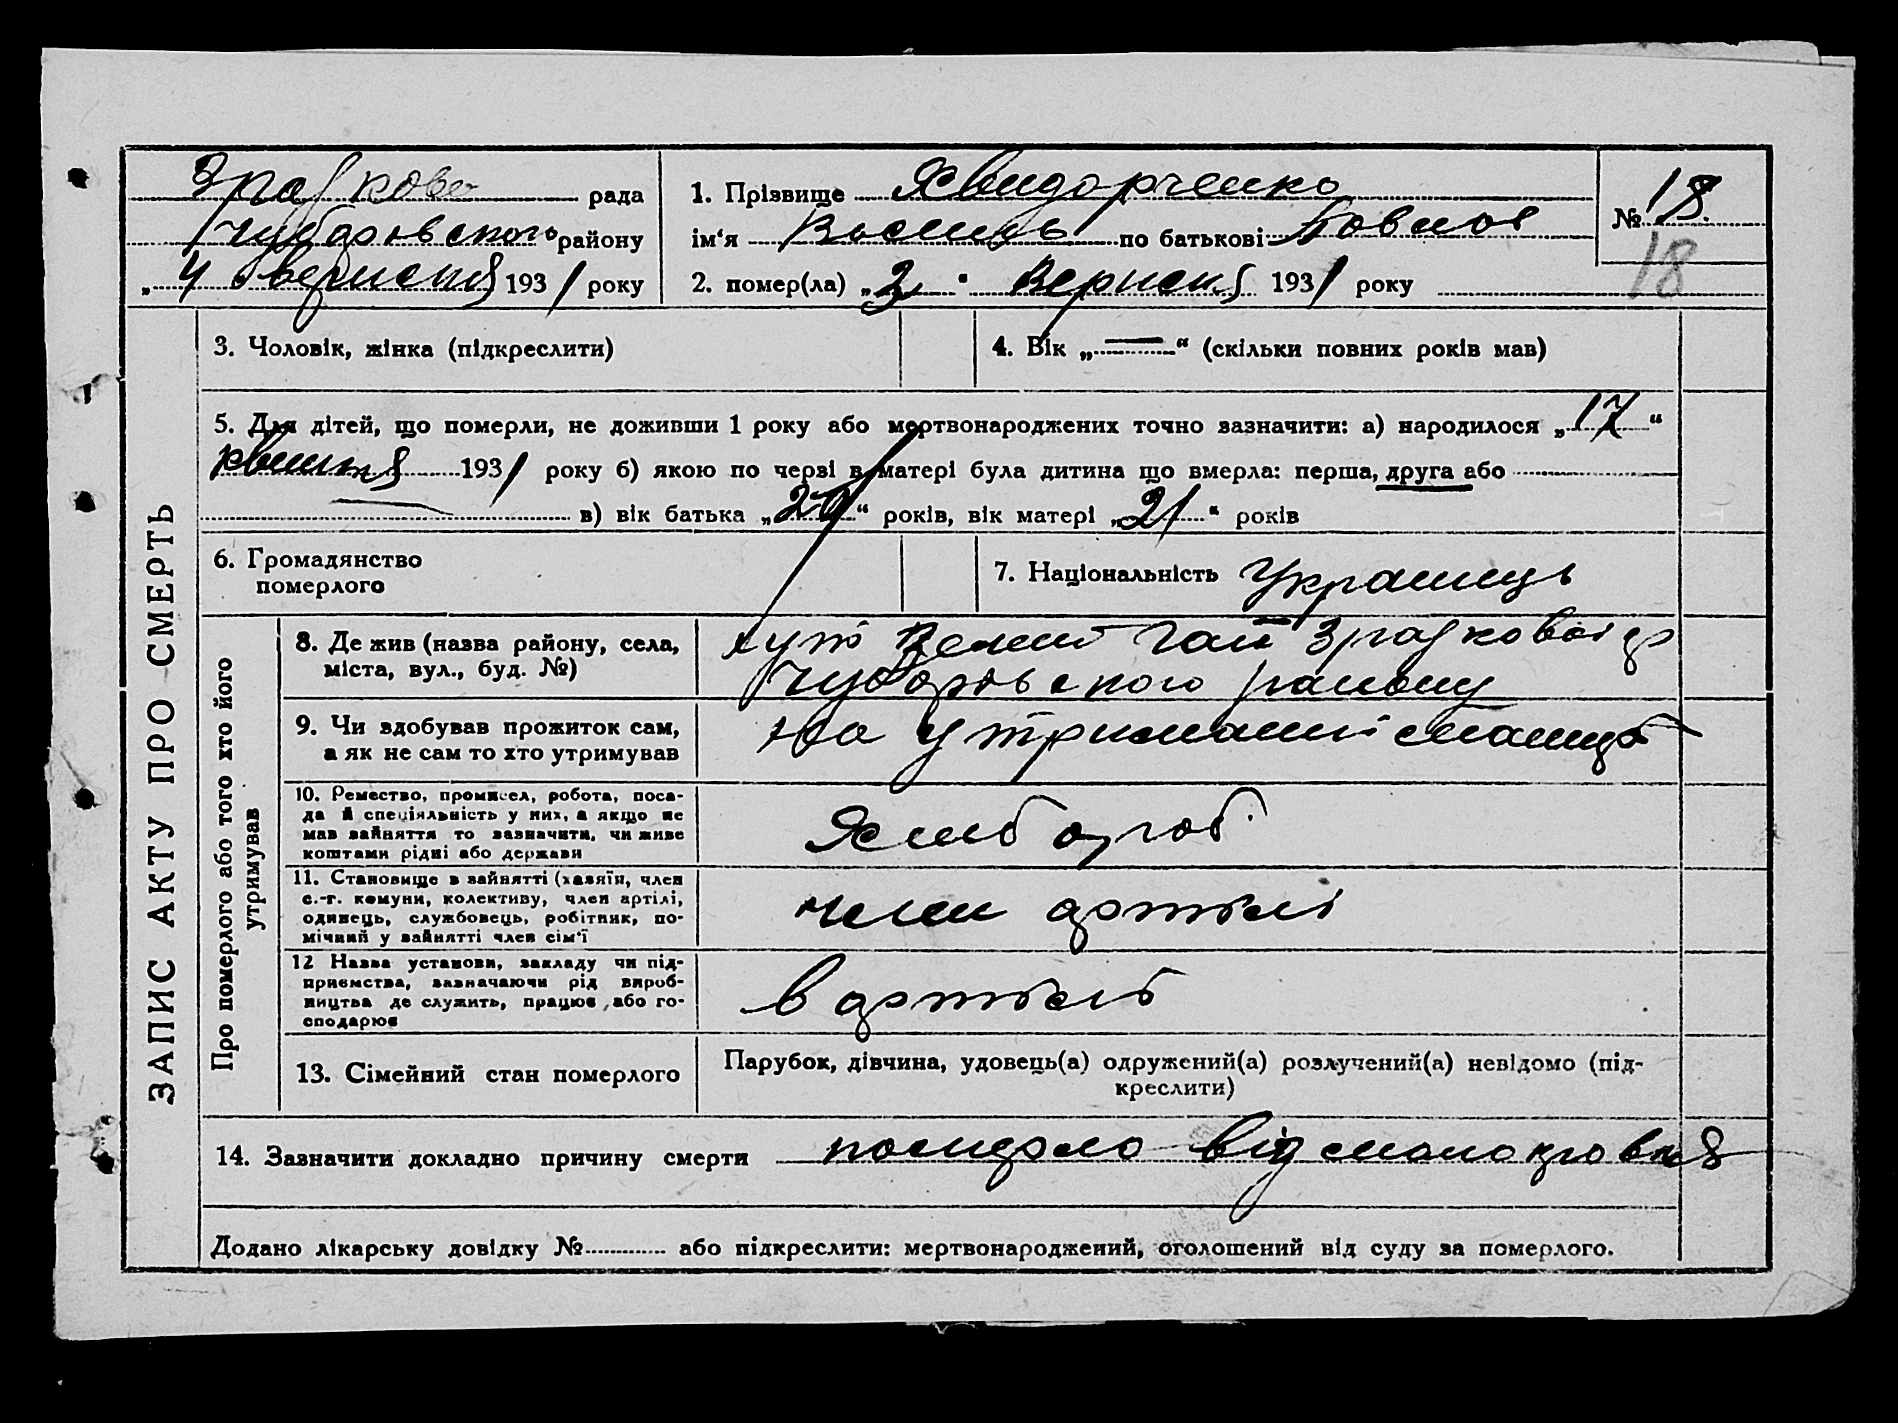 рада
1. Прізвище Хвидорченко
№ 18.
Чубаровського району
ім‘я Василь по батькові
„4 вересня 1931 року
2. помер(ла) „2“ Вересня 1931 року
18
3. Чоловік, жінка (підкреслити)
4. Вік „—“ (скільки повних років мав)
5. Для дітей, що померли, не доживши 1 року або мертвонароджених точно зазначити: а) народилося „17“
квітня 1931 року б) якою по черві в матері була дитина що вмерла: перша, друга або
в) вік батька „“ років, вік матері „21“ років
6. Громадянство
померлого
7. Національність Українць
8. Де жив (назва району, села,
міста, вул., буд. №)
хут Зелени Гай
Чубаровського району
9. Чи здобував прожиток сам,
а як не сам то хто утримував
На утримании
10. Ремество, промисел, робота, поса-
да й спеціяльність у них, а якщо не
мав зайняття то зазначити, чи живе
коштами рідні або держави
Хлебороб
11. Становище в зайнятті (хазяїн, член
с.-г. комуни, колективу, член артілі,
одинець, службовець, робітник, по-
мічний у зайнятті член сім‘ї
член артілі
12 Назва установи, закладу чи під-
приємства, зазначаючи рід вироб-
ництва де служить, працює, або го-
сподарює
в артели
13. Сімейний стан померлого
Парубок, дівчина, удовець(а) одружений(а) розлучений(а) невідомо (під-
креслити)
14. Зазначити докладно причину смерти померло від малокровия
Додано лікарську довідку № або підкреслити: мертвонароджений, оголошений від суду за померлого.
ЗАПИС АКТУ ПРО СМЕРТЬ
Про померлого або того хто його
утримував